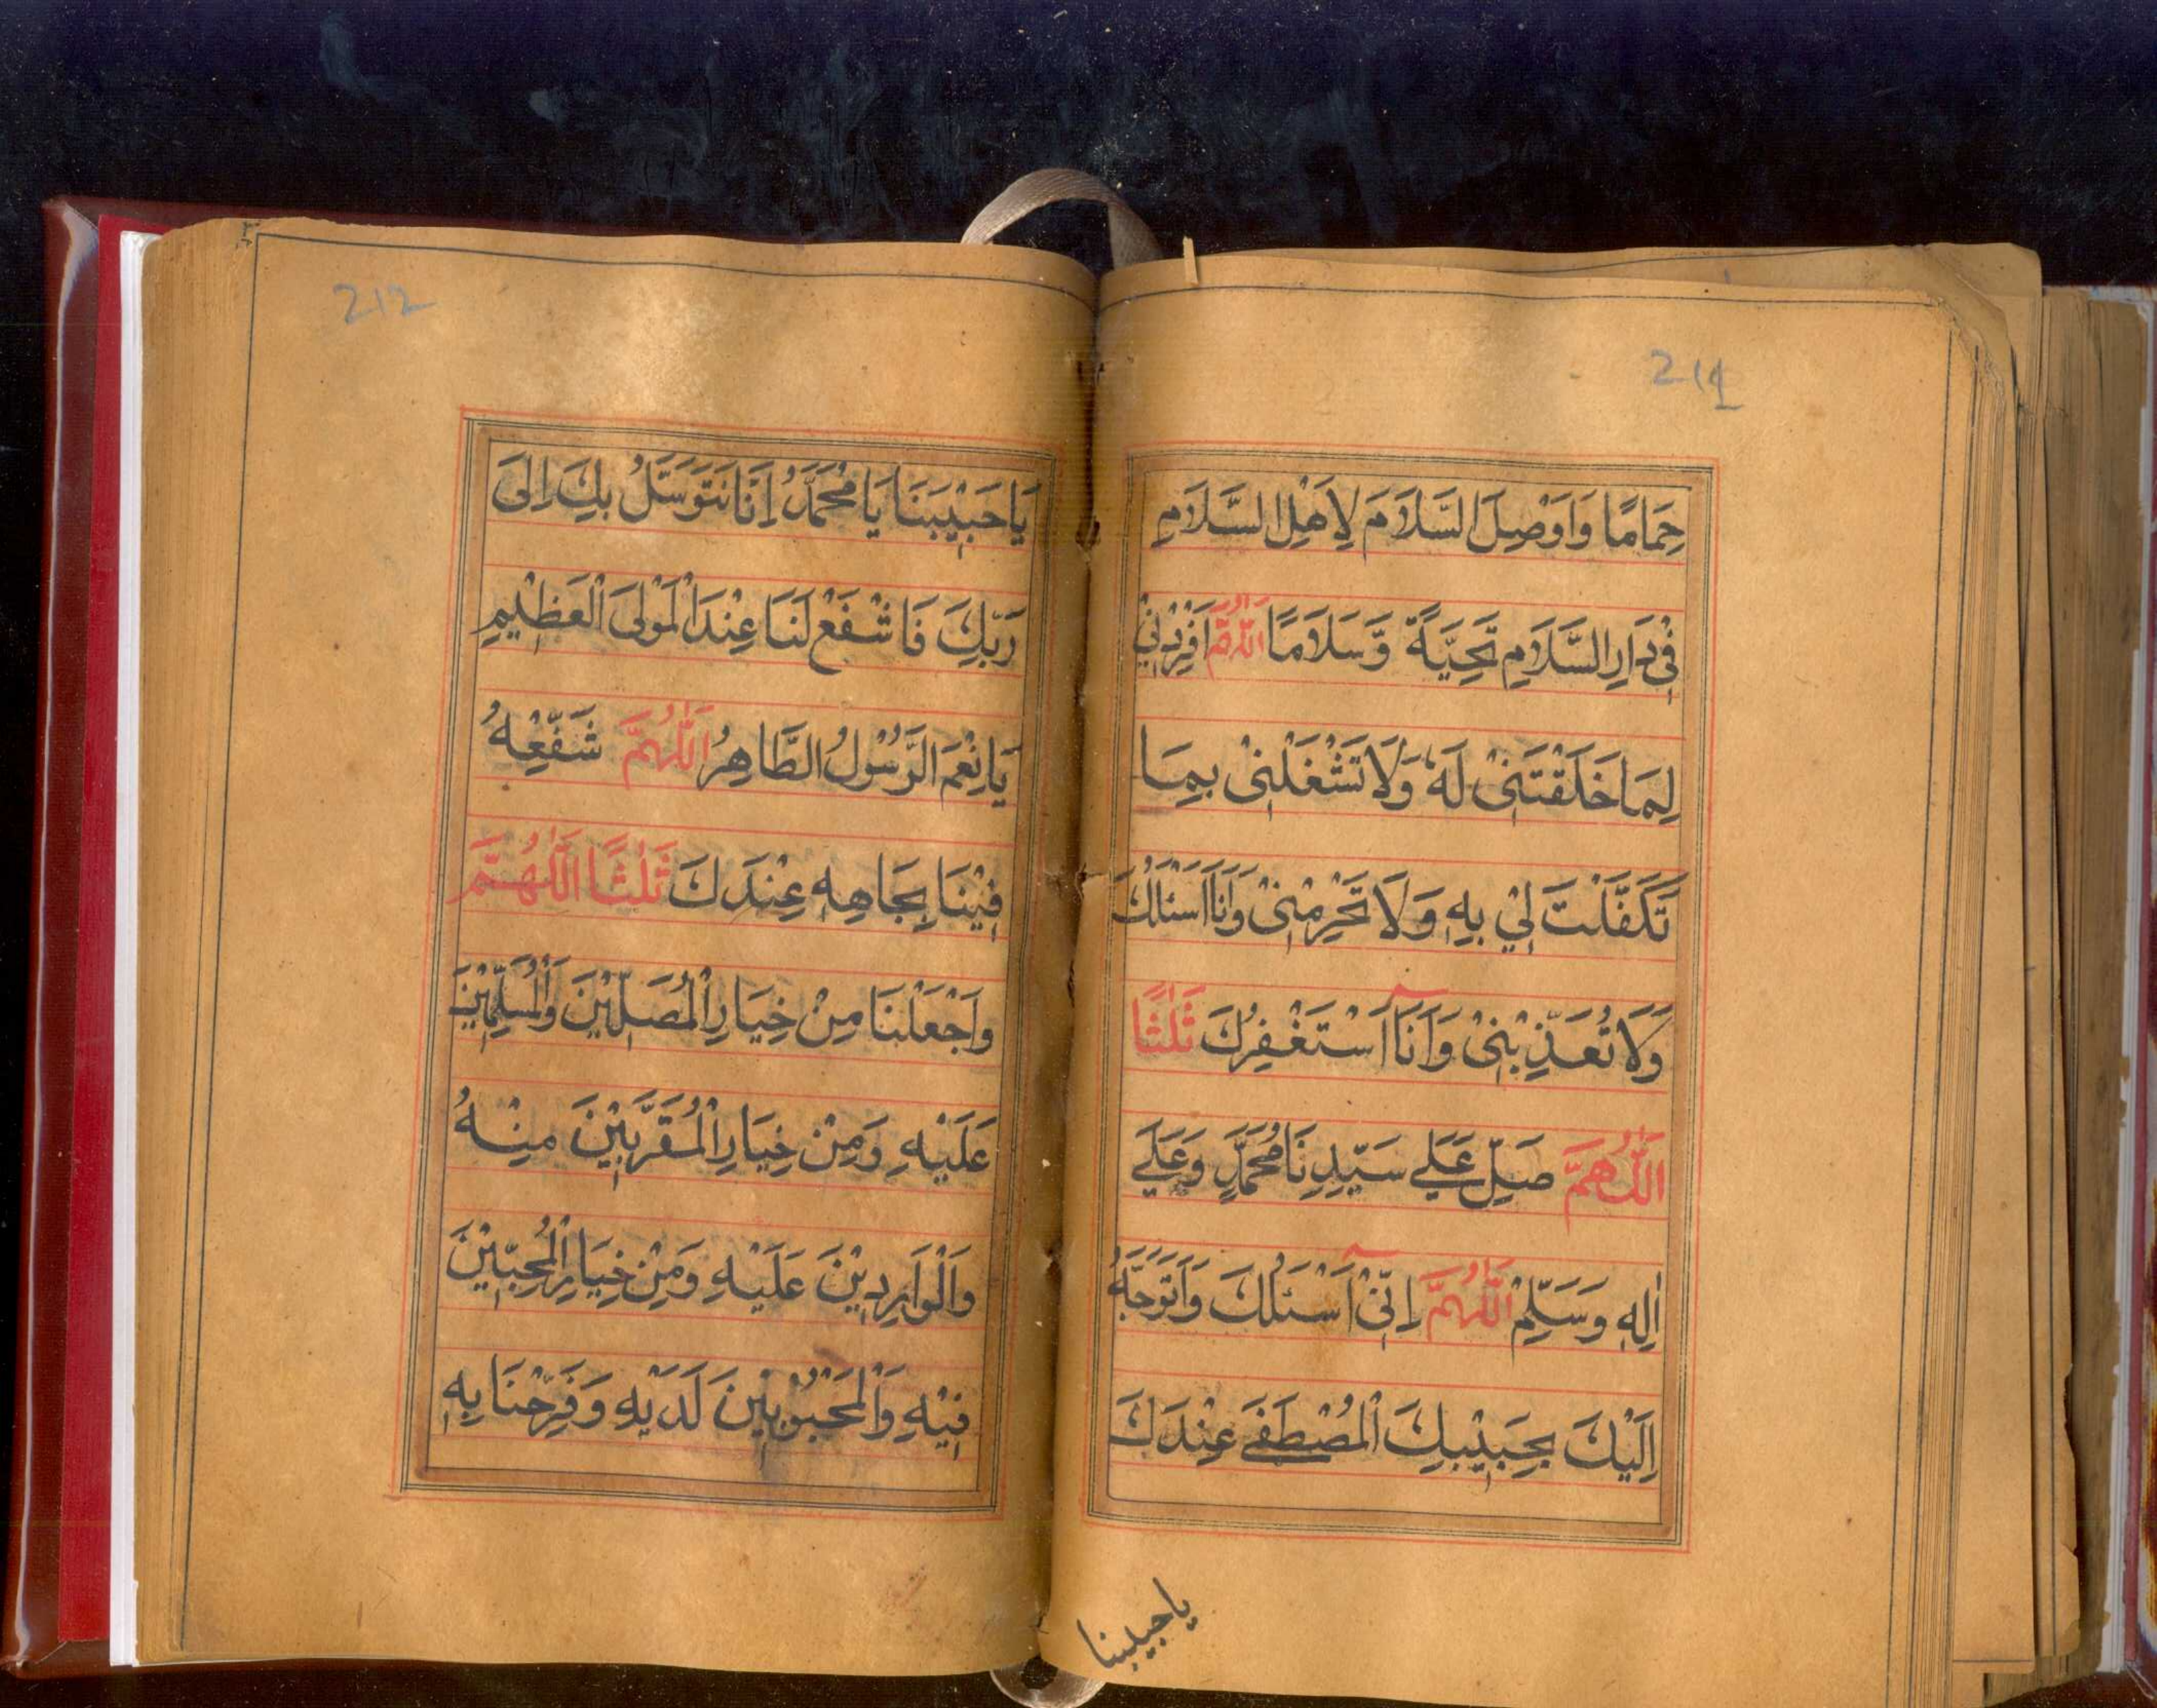 211
حِمَامًا وَاَوْصِلَ السَّلَامَ لِاَهْلِ السَّلَامِ
فِيْ دَارِ السَّلَامِ تَحِيَّةً وَّسَلَامًا اَللّٰهُمَّ اَفْرِدْنِيْ
لِمَا خَلَقْتَنِيْ لَهٗ وَلَا تَشْغَلْنِيْ بِمَا
تَكَفَّلْتَ لِيْ بِهٖ وَلَا تَحْرِمْنِيْ وَاَنَا اَسْئَلُكَ
وَلَا تُعَذِّبْنِيْ وَاَنَاۤ اَسْتَغْفِرُكَ ثَلٰثًا
اَللّٰهُمَّ صَلِّ عَلٰے سَيِّدِنَا مُحَمَّدٍ وَعَلٰے
اٰلِهٖ وَسَلِّمْ اَللّٰهُمَّ اِنِّيْۤ اَسْئَلُكَ وَاَتَوَجَّهُ
اِلَيْكَ بِحَبِيْبِكَ الْمُصْطَفٰے عِنْدَكَ
ياحبيبنا
212
يَاحَبِيْبَنَا يَا مُحَمَّدُ اِنَّا نَتَوَسَّلُ بِكَ اِلٰى
رَبِّكَ فَاشْفَعْ لَنَا عِنْدَ الْمَوْلَى الْعَظِيْمِ
يَا نِعْمَ الرَّسُوْلُ الطَّاهِرُ اَللّٰهُمَّ شَفِّعْهُ
فِيْنَا بِجَاهِهٖ عِنْدَكَ ثَلٰثًا اَللّٰهُمَّ
وَاجْعَلْنَا مِنْ خِيَارِ الْمُصَلِّيْنَ وَالْمُسَلِّمِيْنَ
عَلَيْهِ وَمِنْ خِيَارِ الْمُقَرَّبِيْنَ مِنْهُ
وَالْوَارِدِيْنَ عَلَيْهِ وَمِنْ خِيَارِ الْمُحِبِّيْنَ
فِيْهِ وَالْمَحْبُوْبِيْنَ لَدَيْهِ وَفَرِّحْنَا بِهٖ